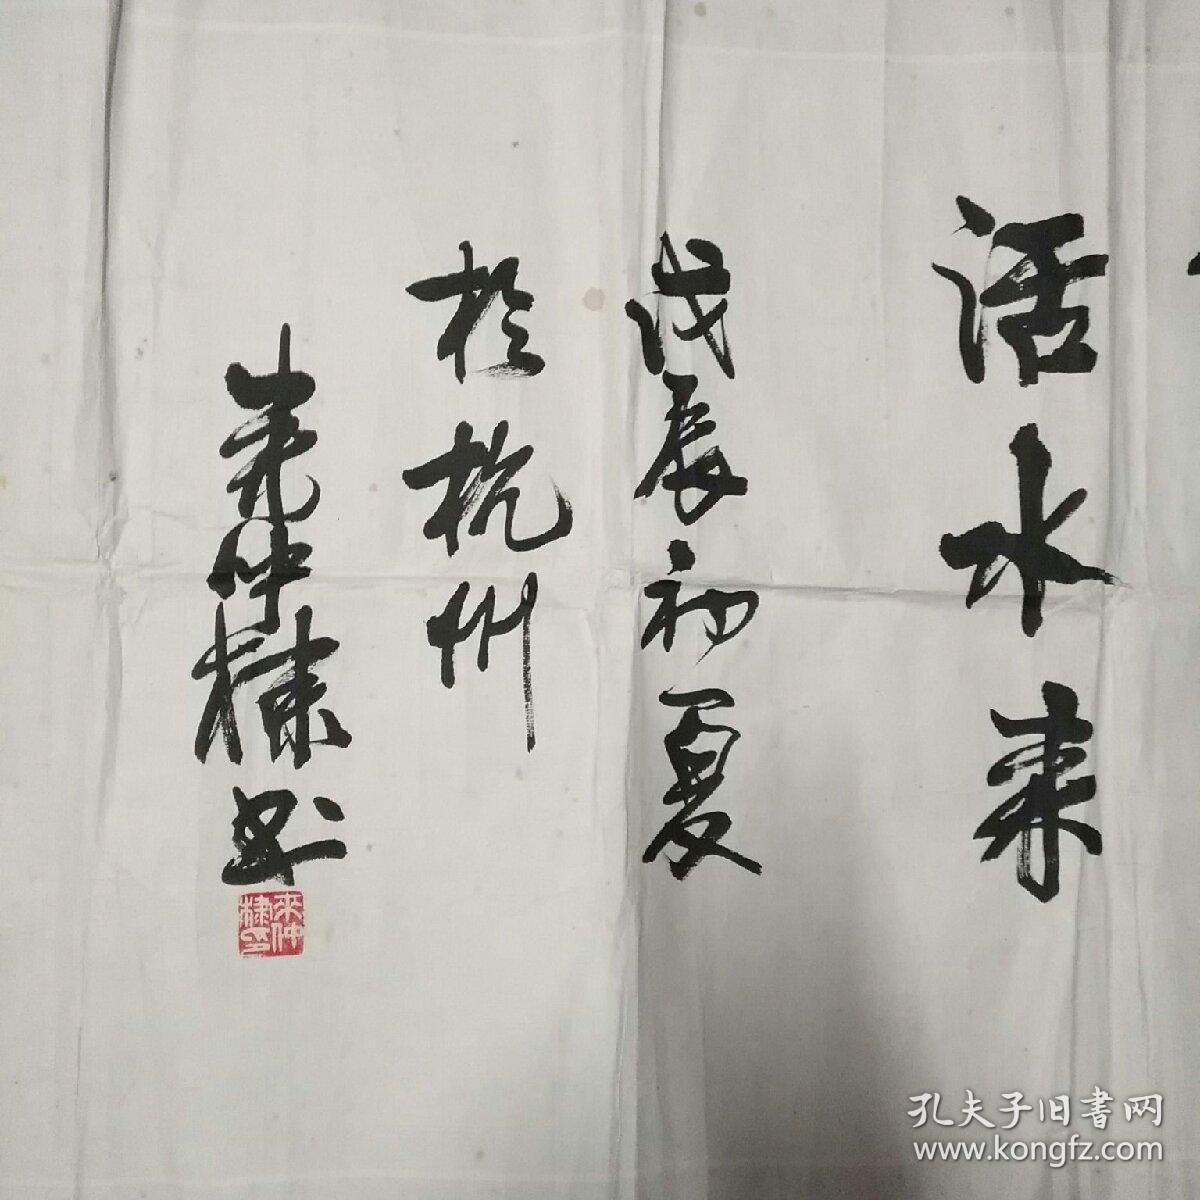 活水来
戊辰初夏
於杭州
来仲棣书
来仲
棣印
孔夫子旧書网
www.kongfz.com